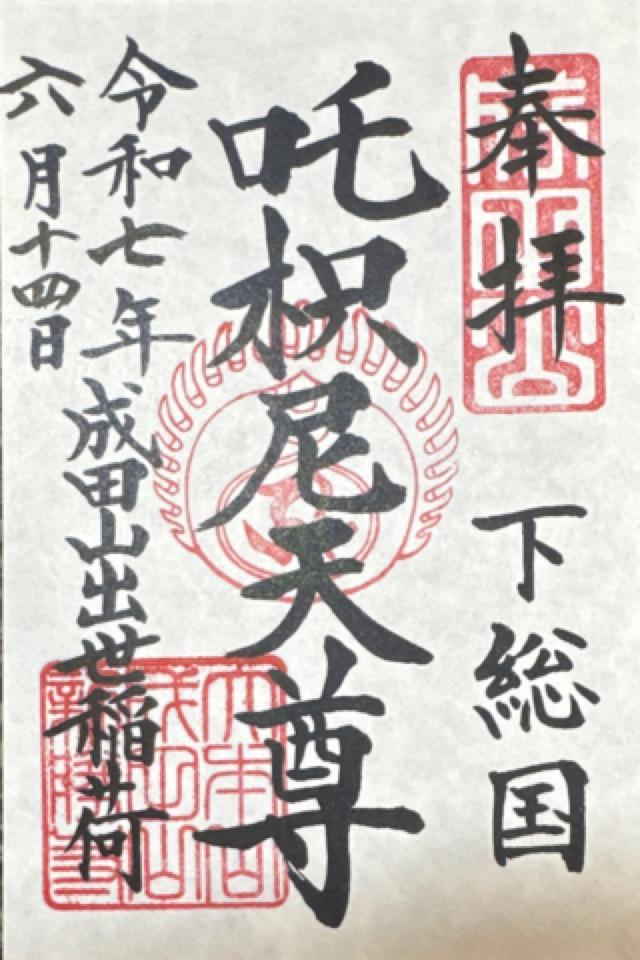 奉拝
下総国
吒枳尼天尊
令和七年
六月十四日
成田山出世稲荷